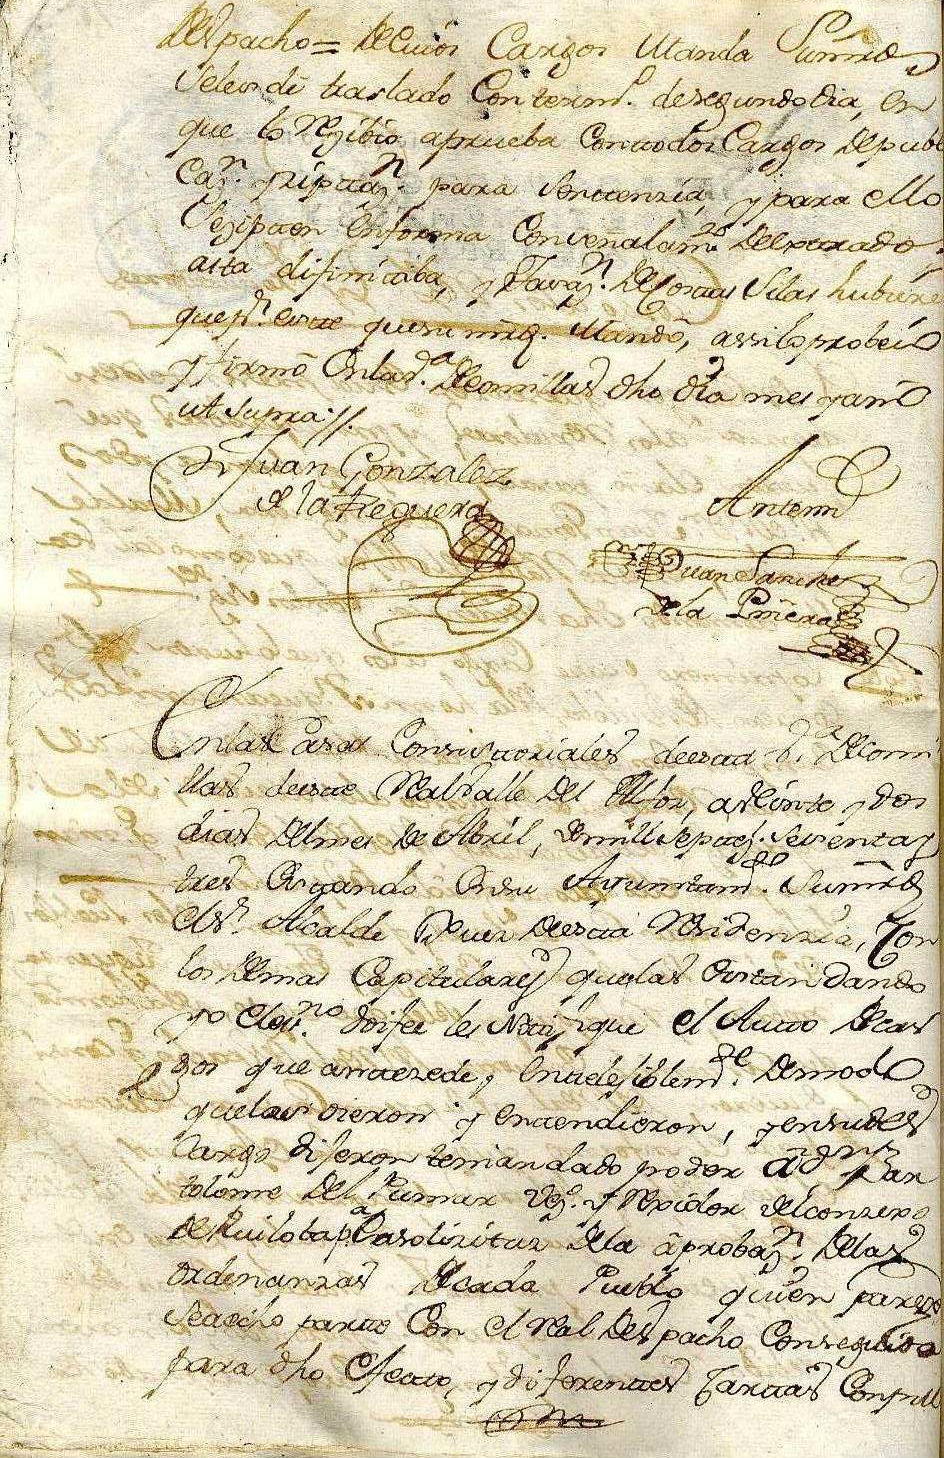 Despacho = De cuios Cargos Manda Sumrd
Seles dé traslado Con termº. de segundo dia, en
que lo Rezibio aprueba Con todos Cargos de publi
caz.n y zitaz.n para Sentenzia, y para ello
Seziten en forma Con señalam.to Del estrado
asta difinitiba, y tasaz.n De Costas Silas hubiere
que p.r este que su mrd. Mandó, assilo probeió
y firmó En la d.a V.a De Comillas dho dia mes y año
ut supra //.
Dn Juan Gonzalez
de la Reguera
Antemi
Juan Sanchez
de la Piñera
En las Casas Consistoriales de esta V.a De Comi
llas de este Real Valle Del Alfoz, a Veinte y dos
dias Del mes De Abril, de mill Setez.s Setenta y
tres Estando En su Ayuntam.to Su mrd
El S.r Alcalde Juez De esta Residenzia, Con
los Demas Capitulares que las Estan dando
yo el es.no doifee les Notifique el Auto De car
gos que antezede, Entelejiblem.te De modo
que las oieron y entendieron, y en su des
Cargo dijeron tenian dado poder a Dn Bar
tolome Del Pumar Vez.o y Rexidor del conzejo
De Ruiloba p.a Pa solizitar De la aprobaz.n De las
ordenanzas De cada Pueblo quien pareze
Se a echo parte Con el Real Despacho Conseguido
para dho Efecto, y diferentes Cartas Consul